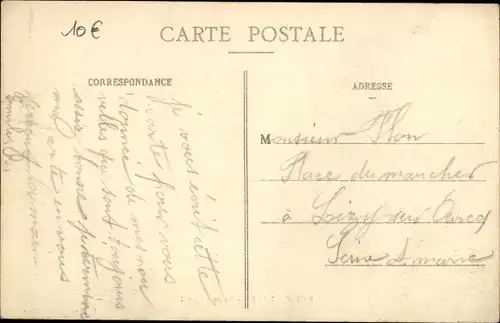 10€
CARTE POSTALE
CORRESPONDANCE
je vous écris cette
carte pour vous
donner de mes nou
velles qui sont toujours
assez bonne
ma carte en vous
ADRESSE
Monsieur Plon
Place du marcher
à Lizy sur Ourcq
Seine et marne